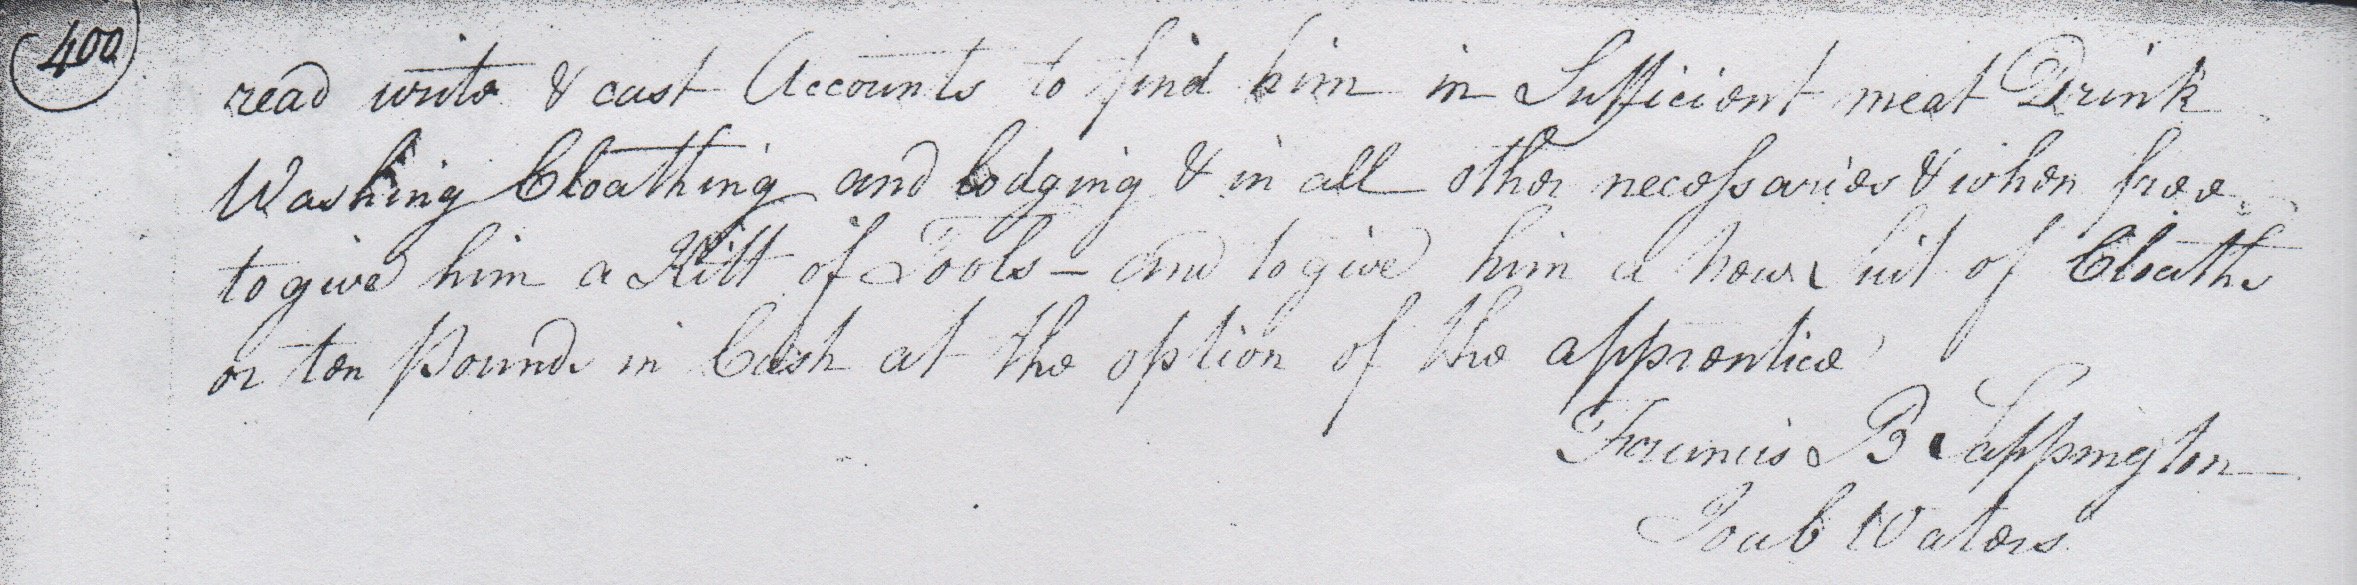 400
read write & cast Accounts to find him in Sufficient meat Drink
Washing Cloathing and Lodging & in all other necessaries & when free
to give him a Kitt of Tools — and to give him a new Suit of Cloaths
or ten Pounds in Cash at the option of the apprentice
Francis B Sappington
Joab Waters